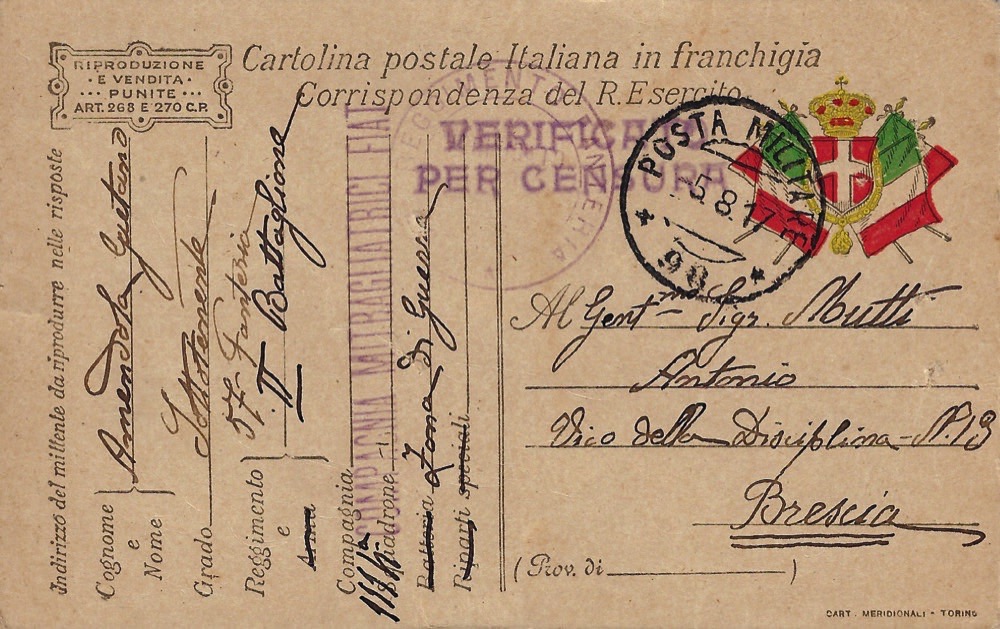 RIPRODUZIONE
· E VENDITA ·
··· PUNITE ···
ART. 268 E 270 C.P.
Cartolina postale Italiana in franchigia
Corrispondenza del R. Esercito
VERIFICATO
PER CENSURA
POSTA MILITARE
5.8.17
98
Al Gent.mo Sigr. Mutti
Antonio
Vico della Disciplina - N. 13
Brescia
(Prov. di)
CART. MERIDIONALI - TORINO
Indirizzo del mittente da riprodurre nelle risposte
Cognome e Nome Amendola Gaetano
Grado Sottotenente
Reggimento e Arma 57 Fanteria II Battaglione
Compagnia
COMPAGNIA MITRAGLIATRICI FIAT
Squadrone
Batteria Zona di Guerra
Riparti speciali